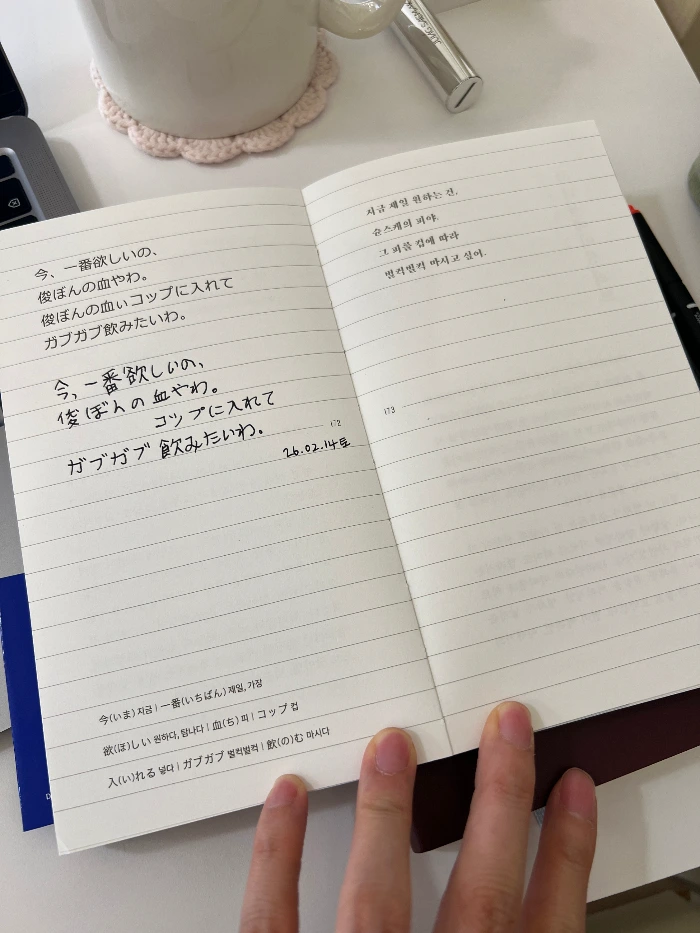 今、一番欲しいの、
俊ぼんの血やわ。
俊ぼんの血いコップに入れて
ガブガブ飲みたいわ。
今、一番欲しいの、
俊ぼんの血やわ。
コップに入れて
ガブガブ飲みたいわ。
172
26.02.14 토
今(いま) 지금 | 一番(いちばん) 제일, 가장
欲(ほ)しい 원하다, 탐나다 | 血(ち) 피 | コップ 컵
入(い)れる 넣다 | ガブガブ 벌컥벌컥 | 飲(の)む 마시다
지금 제일 원하는 건,
슌스케의 피야.
그 피를 컵에 따라
벌컥벌컥 마시고 싶어.
173